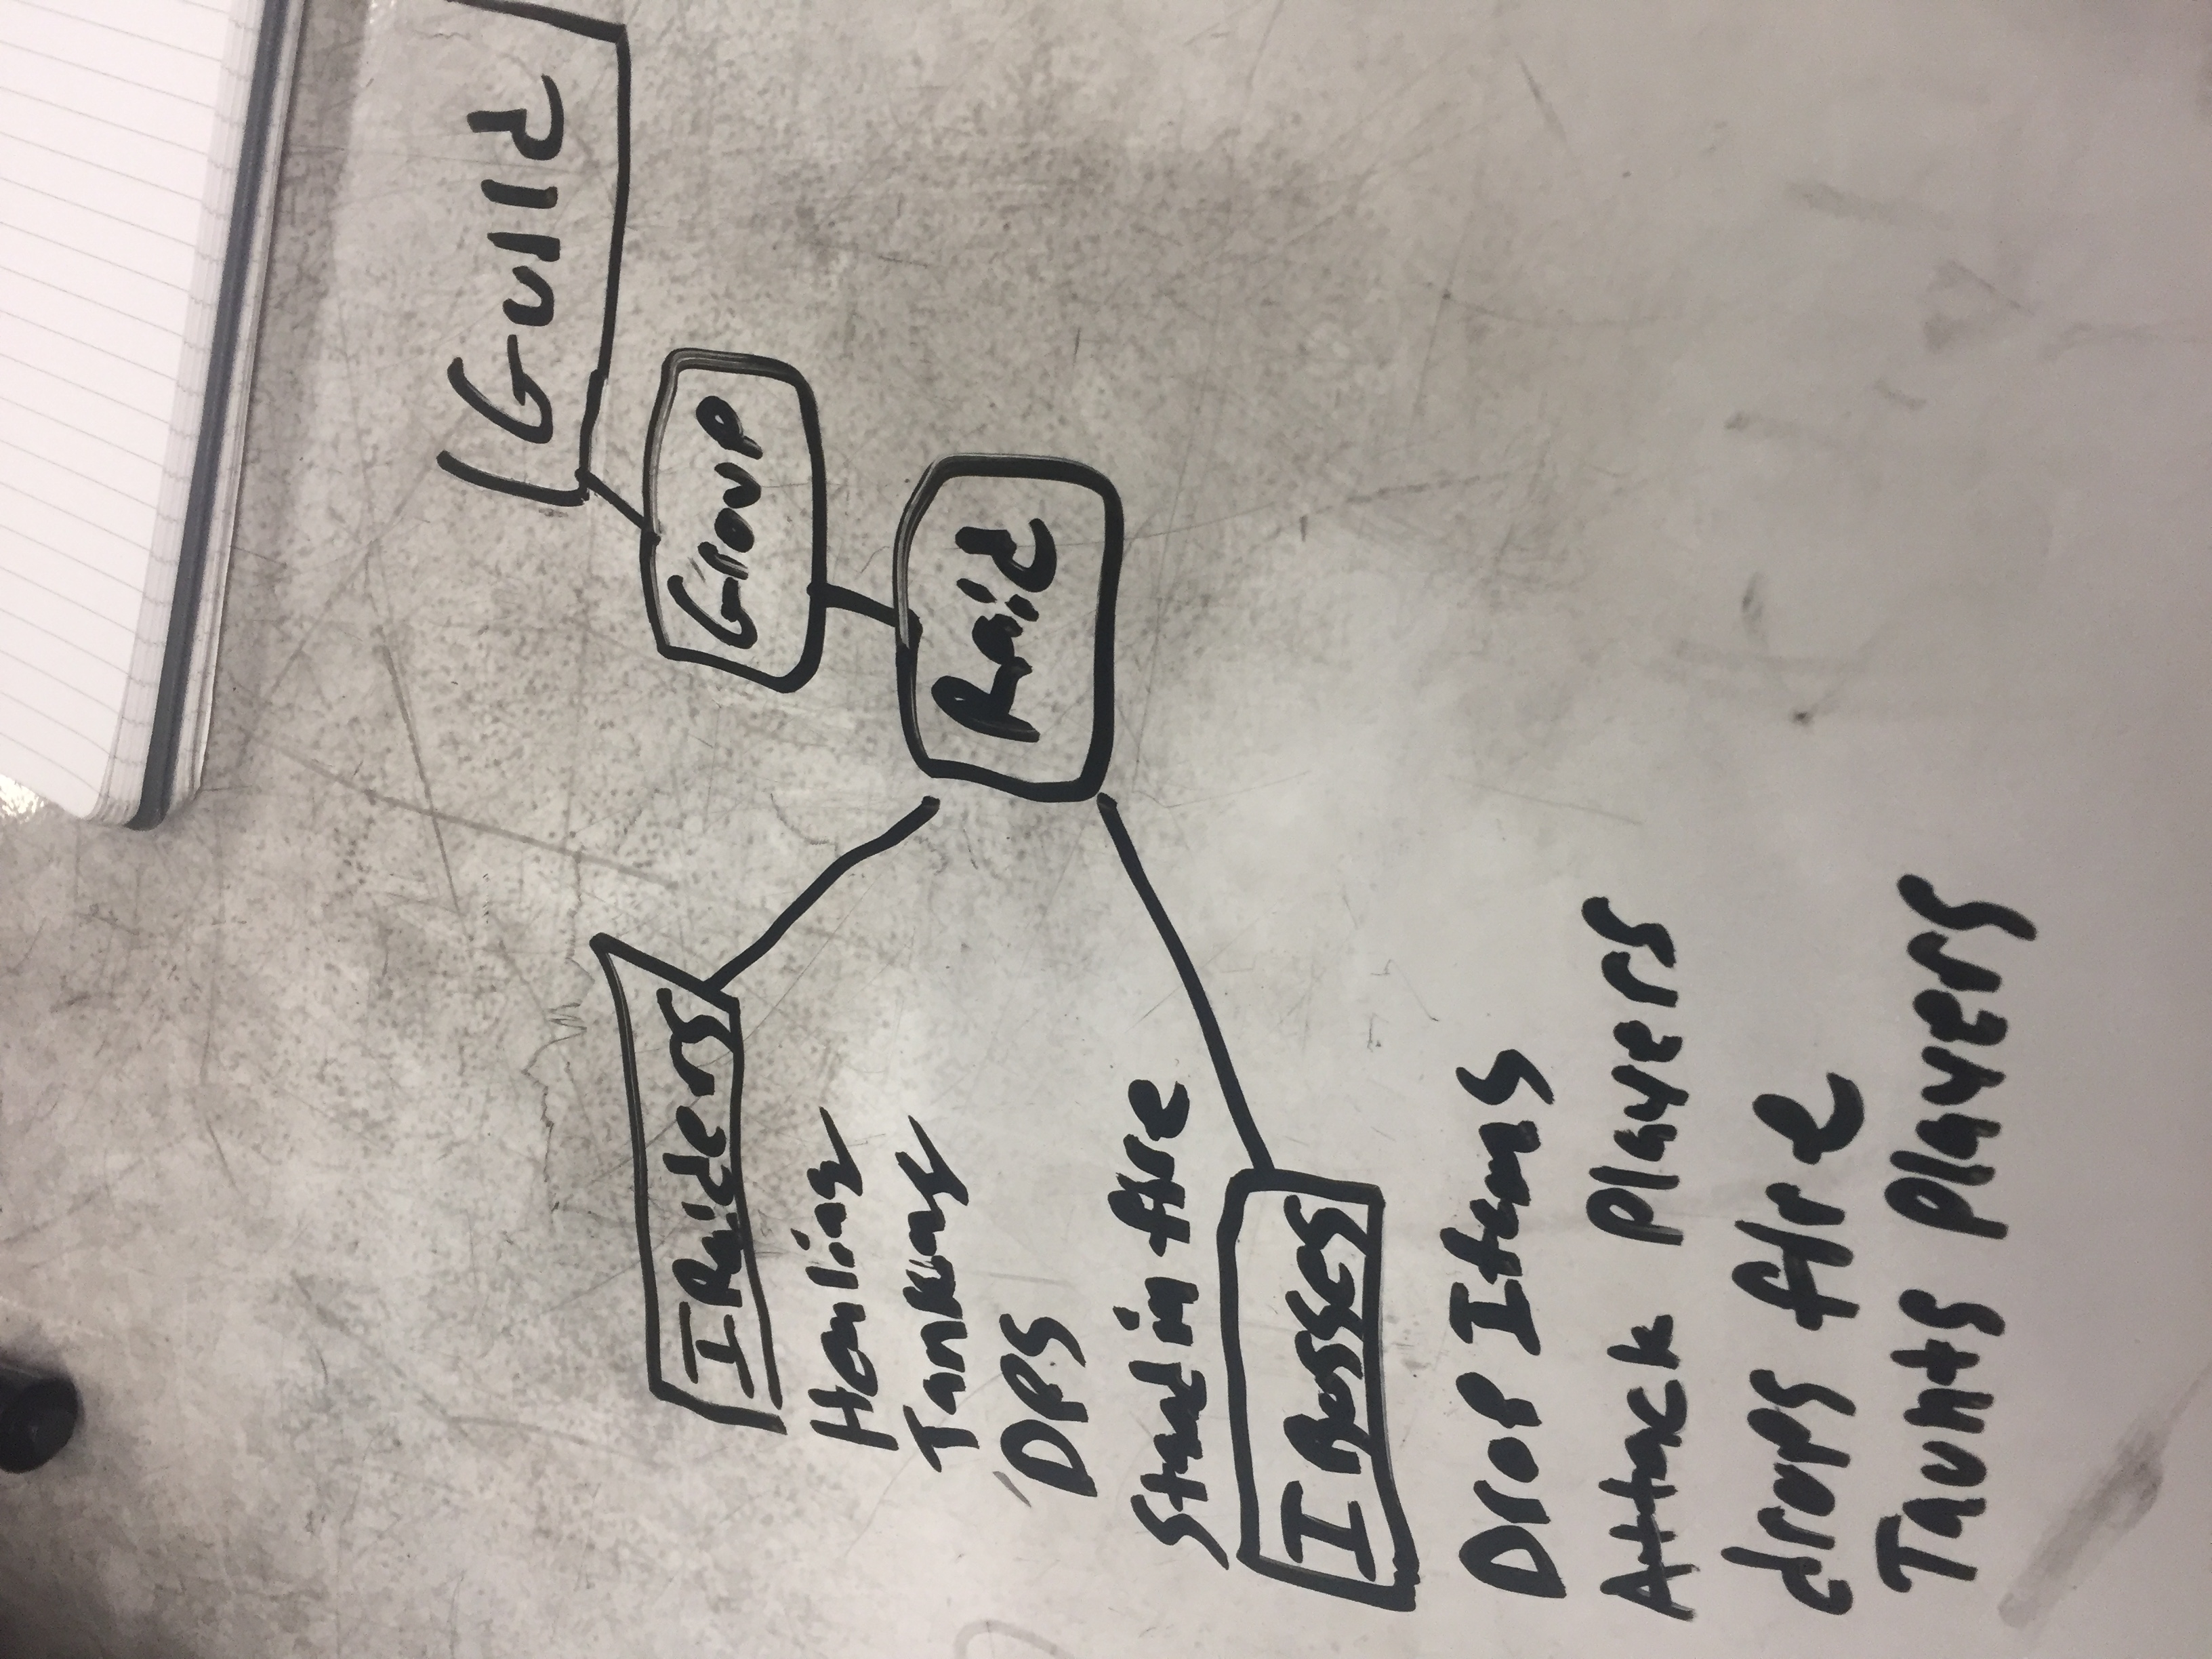 Guild
Group
Raid
IRaiders
Healing
Tanking
DPS
Stand in fire
IBosses
Drop Items
Attack Players
drops fire
Taunts Players